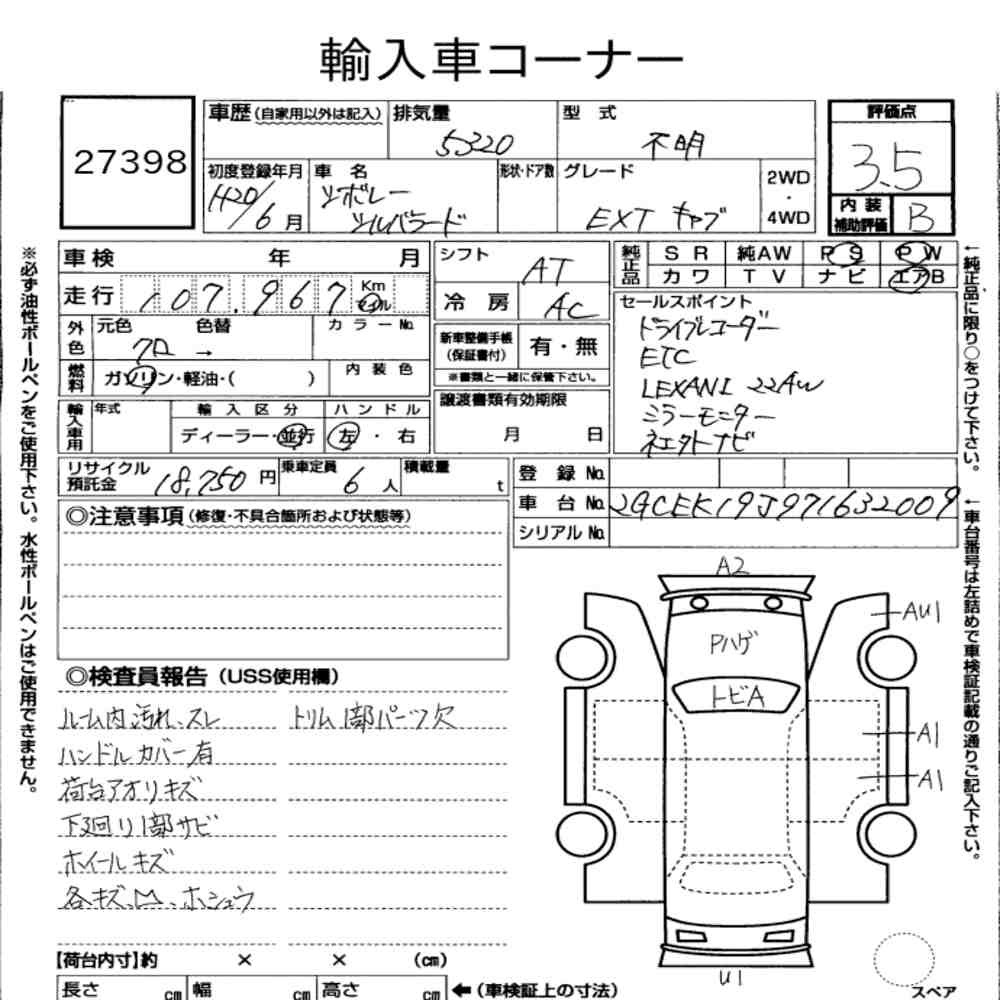 輸入車コーナー
27398
車歴 (自家用以外は記入) 排気量 型 式
5320 不明
評価点
3.5
内装補助評価 B
初度登録年月 車 名 形状・ドア数 グレード 2WD・4WD
H20/6月 シボレー
シルバラード EXT キャブ
車検 年 月 シフト AT
走行 107.967 Km マイル 冷 房 AC
純正品 S R 純AW P S P W
カ ワ T V ナ ビ エアB
外色 元色 色替 カ ラ ー No.
クロ →
新車整備手帳(保証書付) 有・無
※書類と一緒に保管下さい。
燃料 ガソリン・軽油・( ) 内 装 色
輸入車用 年式 輸 入 区 分 ハ ン ド ル
ディーラー・並行 左 ・ 右
譲渡書類有効期限
月 日
セールスポイント
ドライブレコーダー
ETC
LEXANI 22AW
ミラーモニター
ナビ
リサイクル預託金 18,750 円 乗車定員 6 人 積載量 t
登 録 No.
車 台 No. 2GCEK19J971632009
シリアル No.
◎注意事項 (修復・不具合箇所および状態等)
◎検査員報告 (USS使用欄)
ルーム内汚れ、スレ トリム1部パーツ欠
ハンドルカバー有
荷台アオリキズ
下廻り1部サビ
ホイールキズ
各キズ、凹、ホシュウ
A2
AU1
Pハゲ
トビA
A1
A1
U1
スペア
【荷台内寸】約 × × (cm)
長さ cm 幅 cm 高さ cm ←(車検証上の寸法)
※必ず油性ボールペンをご使用下さい。水性ボールペンはご使用できません。
←純正品に限り○をつけて下さい。
←車台番号は左詰めで車検証記載の通りご記入下さい。